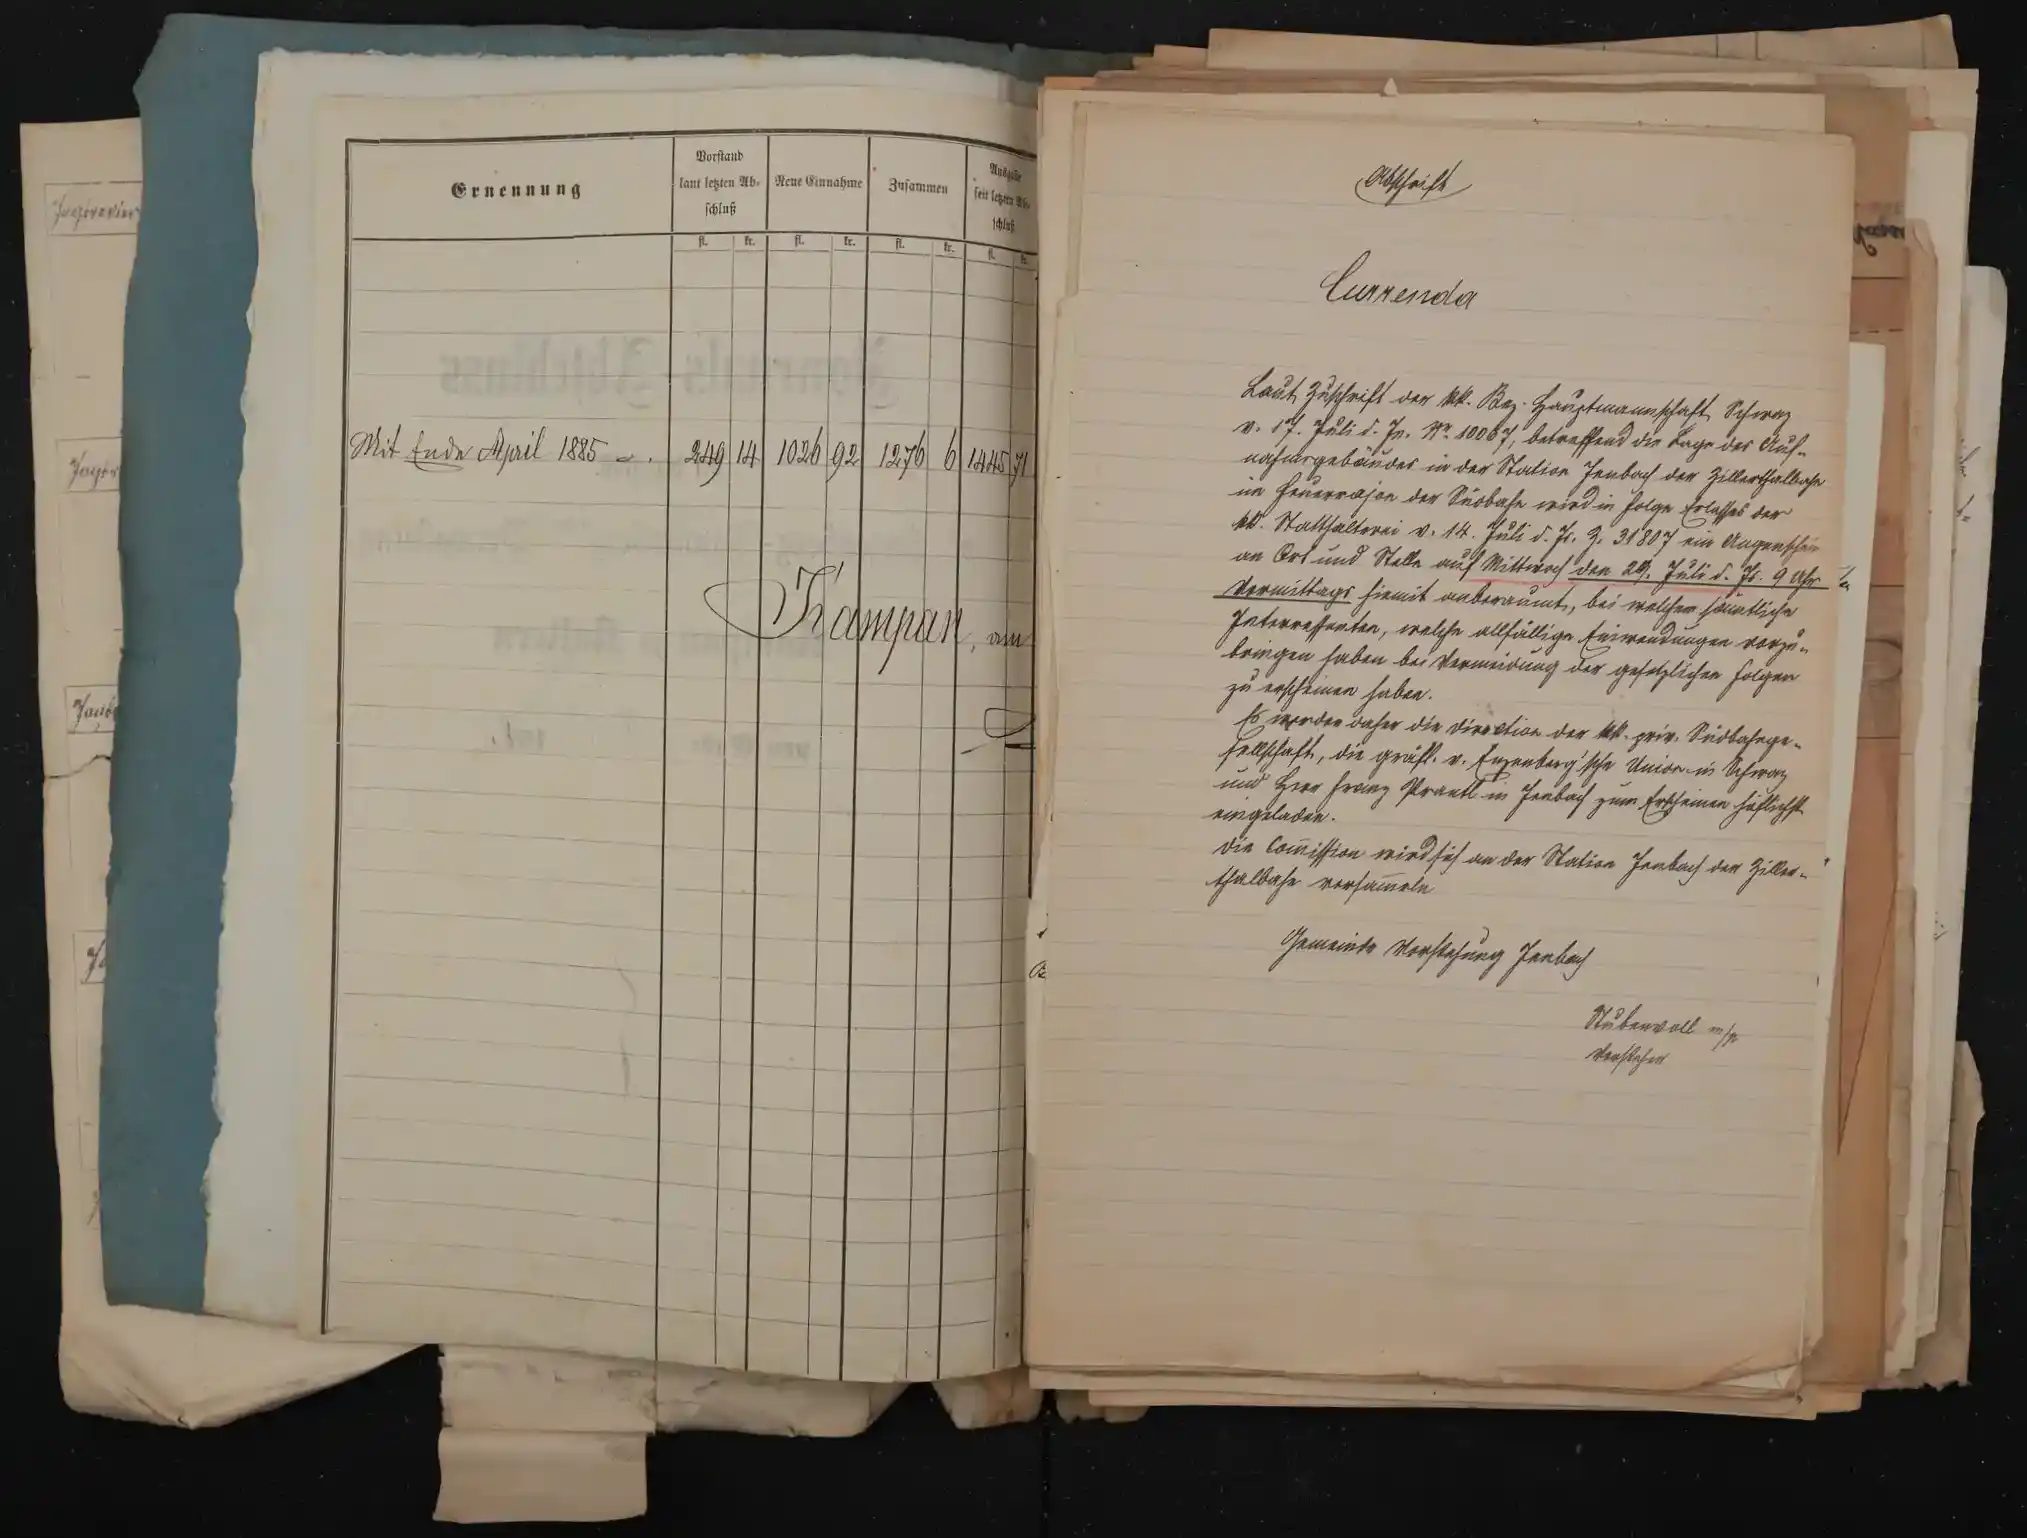 Ernennung
Vorstand laut letzten Ab-schluß
Neue Einnahme
Zusammen
Ausgabe seit letzten Ab-schluß
fl. kr. fl. kr. fl. kr. fl. kr.
Mit Ende April 1885 249 14 1026 92 1276 6 1445 71
Kampan, am
Abschrift
Currenda
Laut Zuschrift der kk. Bez. Hauptmannschaft Schwaz
v. 17. Juli d. Js. No 10067, betreffend die Lage des Auf-
nahmsgebäudes in der Station Jenbach der Zillerthalbahn
im Feuerrajon der Südbahn wird in Folge Erlasses der
kk. Statthalterei v. 14. Juli d. Js. Z. 31807 ein Augenschein
an Ort und Stelle auf Mittwoch den Juli d. Js. 9 Uhr
Vormittags hiemit anberaumt, bei welchem sämtliche
Interressenten, welche allfällige Einwendungen vorzu-
bringen haben bei Vermeidung der gesetzlichen Folgen
zu erscheinen haben.
Es werden daher die Direction der kk. priv. Südbahnge-
sellschaft, die gräfl. v. Enzenberg'sche Union in Schwaz
und Herr Franz Prantl in Jenbach zum Erscheinen höflichst
eingeladen.
Die Commission wird sich an der Station Jenbach der Ziller-
thalbahn versammeln
Gemeinde Vorstehung Jenbach
Stubenvoll m/p
Vorsteher